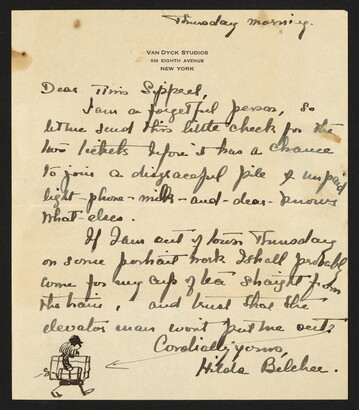 Thursday morning.
VAN DYCK STUDIOS
939 EIGHTH AVENUE
NEW YORK
Dear Miss Sippeel,
I am a forgetful person, so
let me send this little check for the
two tickets before it has a chance
to join a disgraceful pile of unpaid
light-phone-milk-and-dear-knows
what elses.
If I am out of town Thursday
on some portrait work I shall probably
come for my cup of tea straight from
the train, and trust that the
elevator man won't put me out.
Cordially yours,
Hilda Belcher.